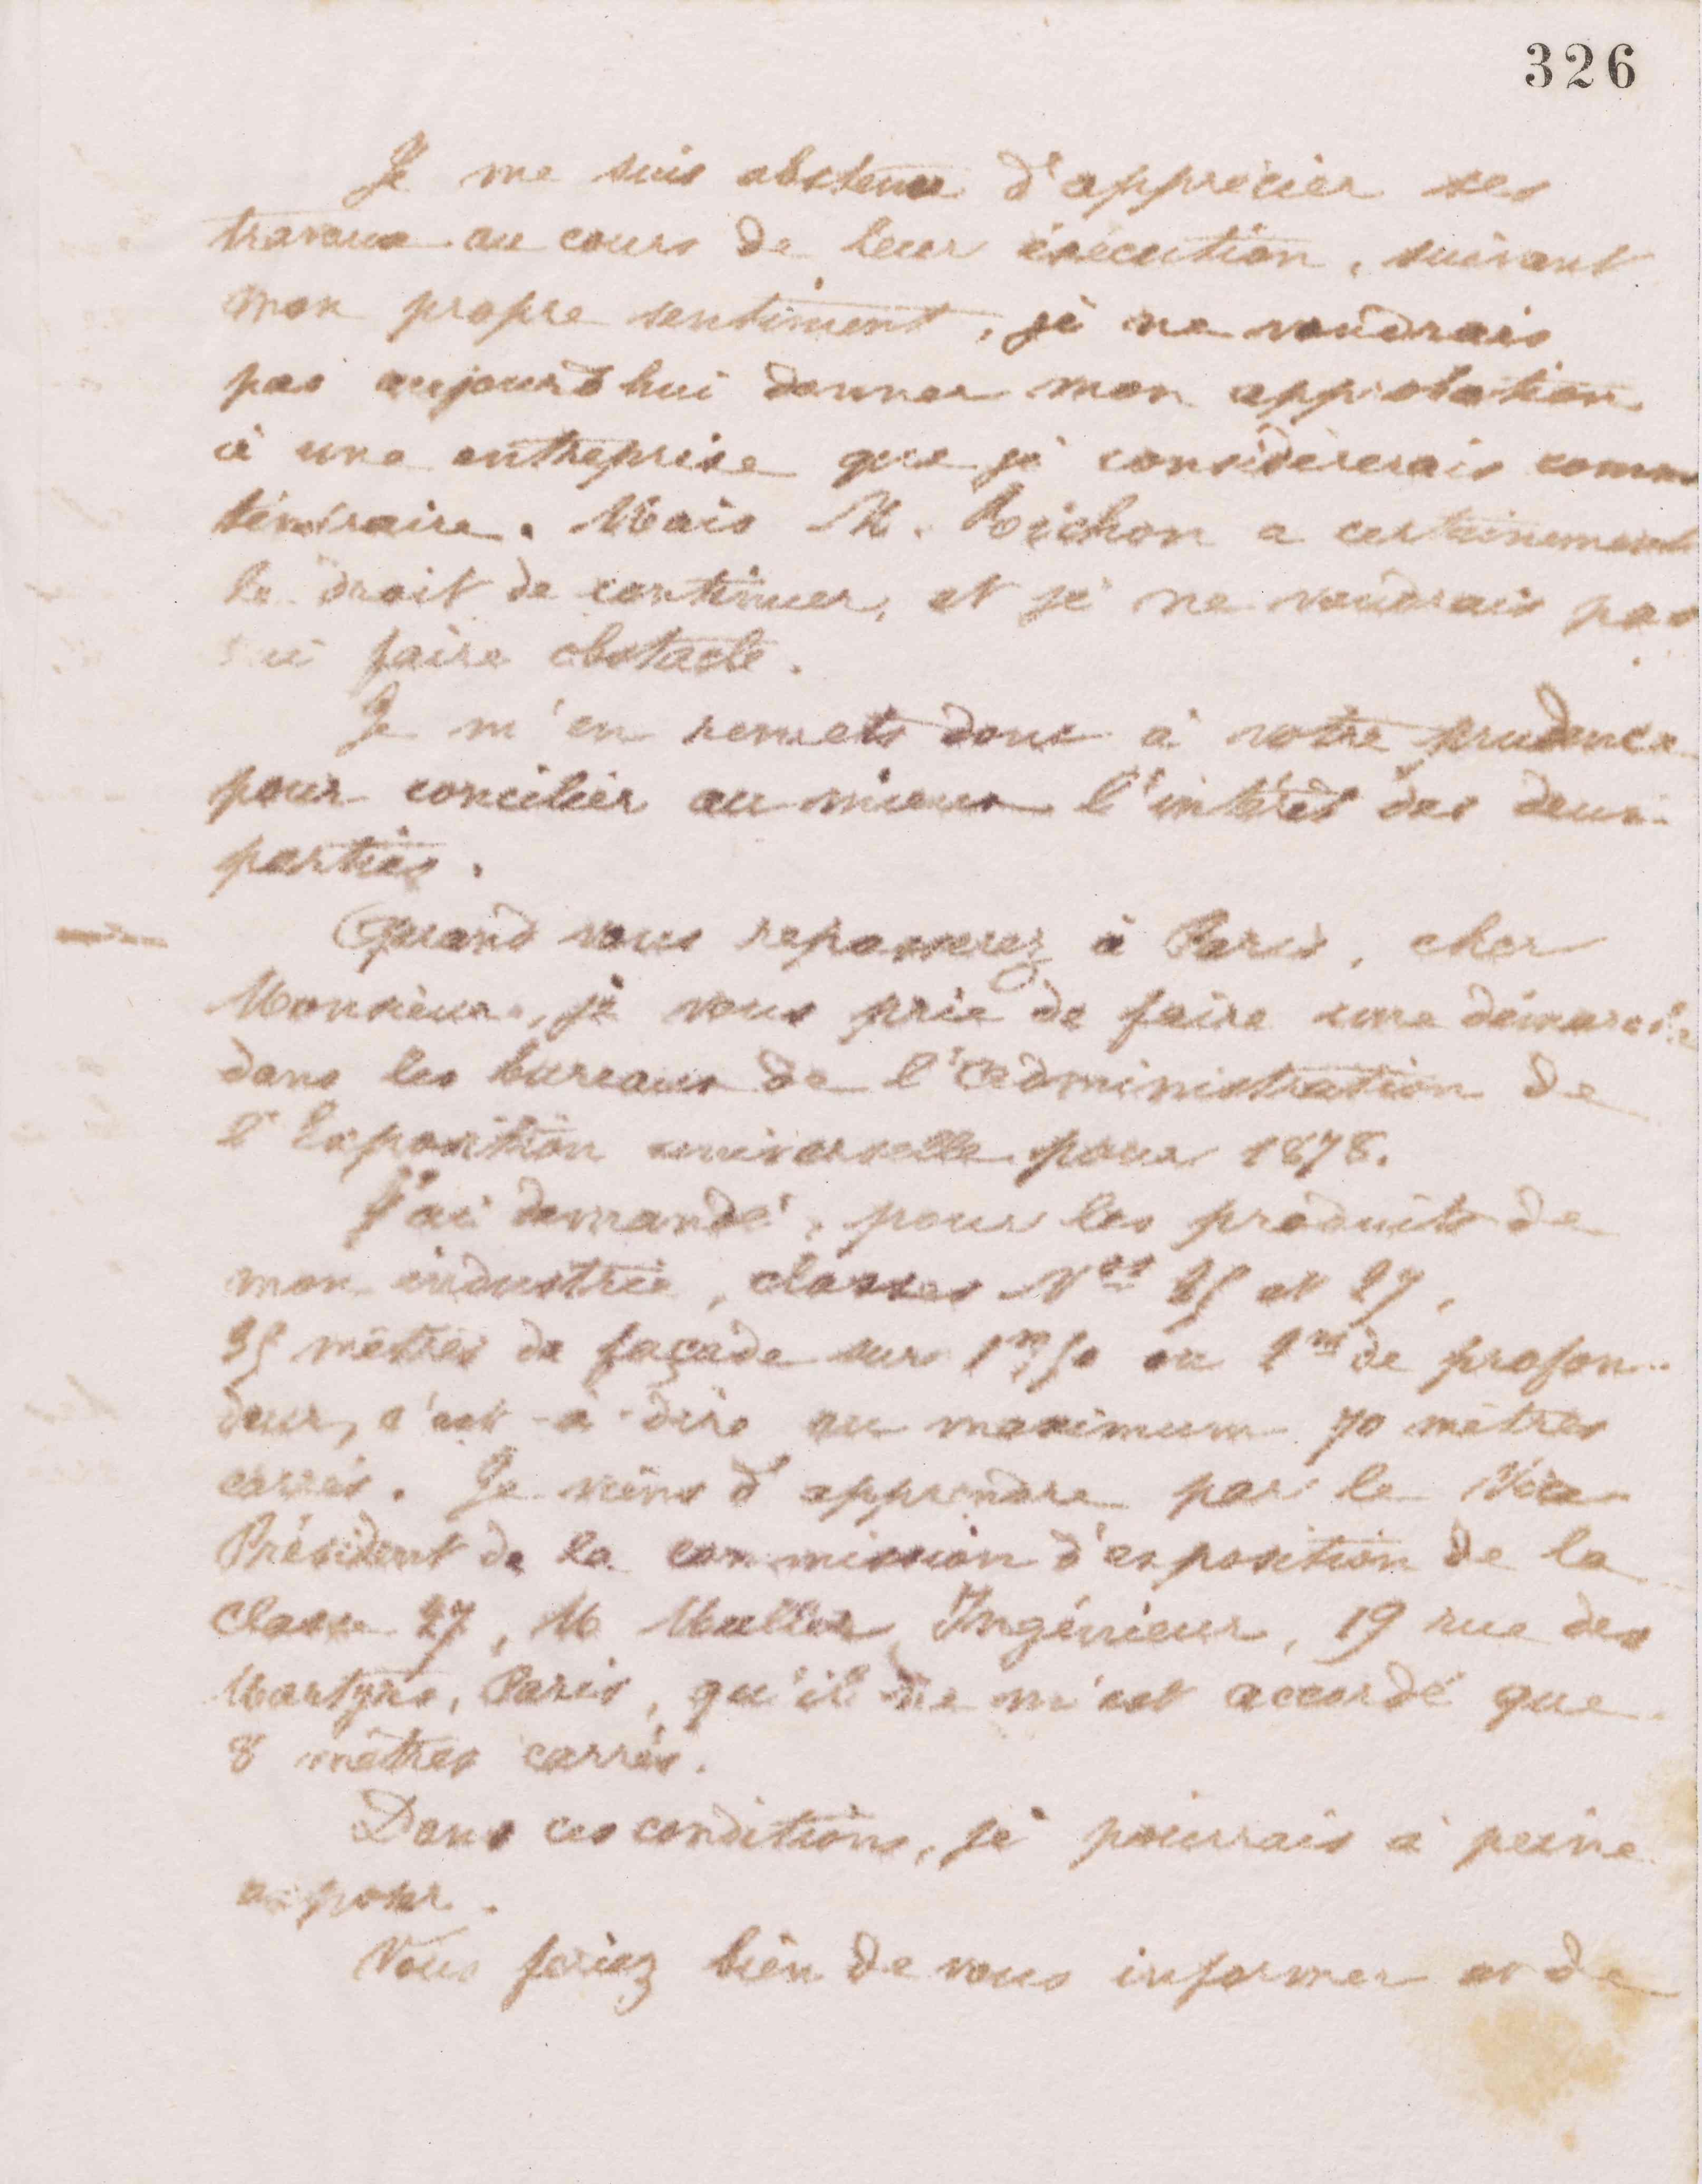 326
Je me suis abstenu d'apprécier ses
travaux au cours de leur exécution, suivant
mon propre sentiment, je ne voudrais
pas aujourd'hui donner mon approbation
à une entreprise que je considèrerais comme
téméraire. Mais M. Poichon a certainement
le droit de continuer, et je ne voudrais pas
lui faire obstacle.
Je m'en remets donc à votre prudence
pour concilier au mieux l'intérêt des deux
parties.
Quand vous repasserez à Paris, cher
Monsieur, je vous prie de faire une démarche
dans les bureaux de l'administration de
l'Exposition universelle pour 1878.
J'ai demandé, pour les produits de
mon industrie, classes Nos 25 et 27,
35 mètres de façade sur 1m50 ou 2m de profon-
deur, c'est-à-dire au maximum 70 mètres
carrés. Je viens d'apprendre par le Vice
Président de la commission d'exposition de la
classe 27, M Muller Ingénieur, 19 rue des
Martyrs, Paris, qu'il ne m'est accordé que
8 mètres carrés.
Dans ces conditions, je pourrais à peine
exposer.
Vous feriez bien de vous informer et de